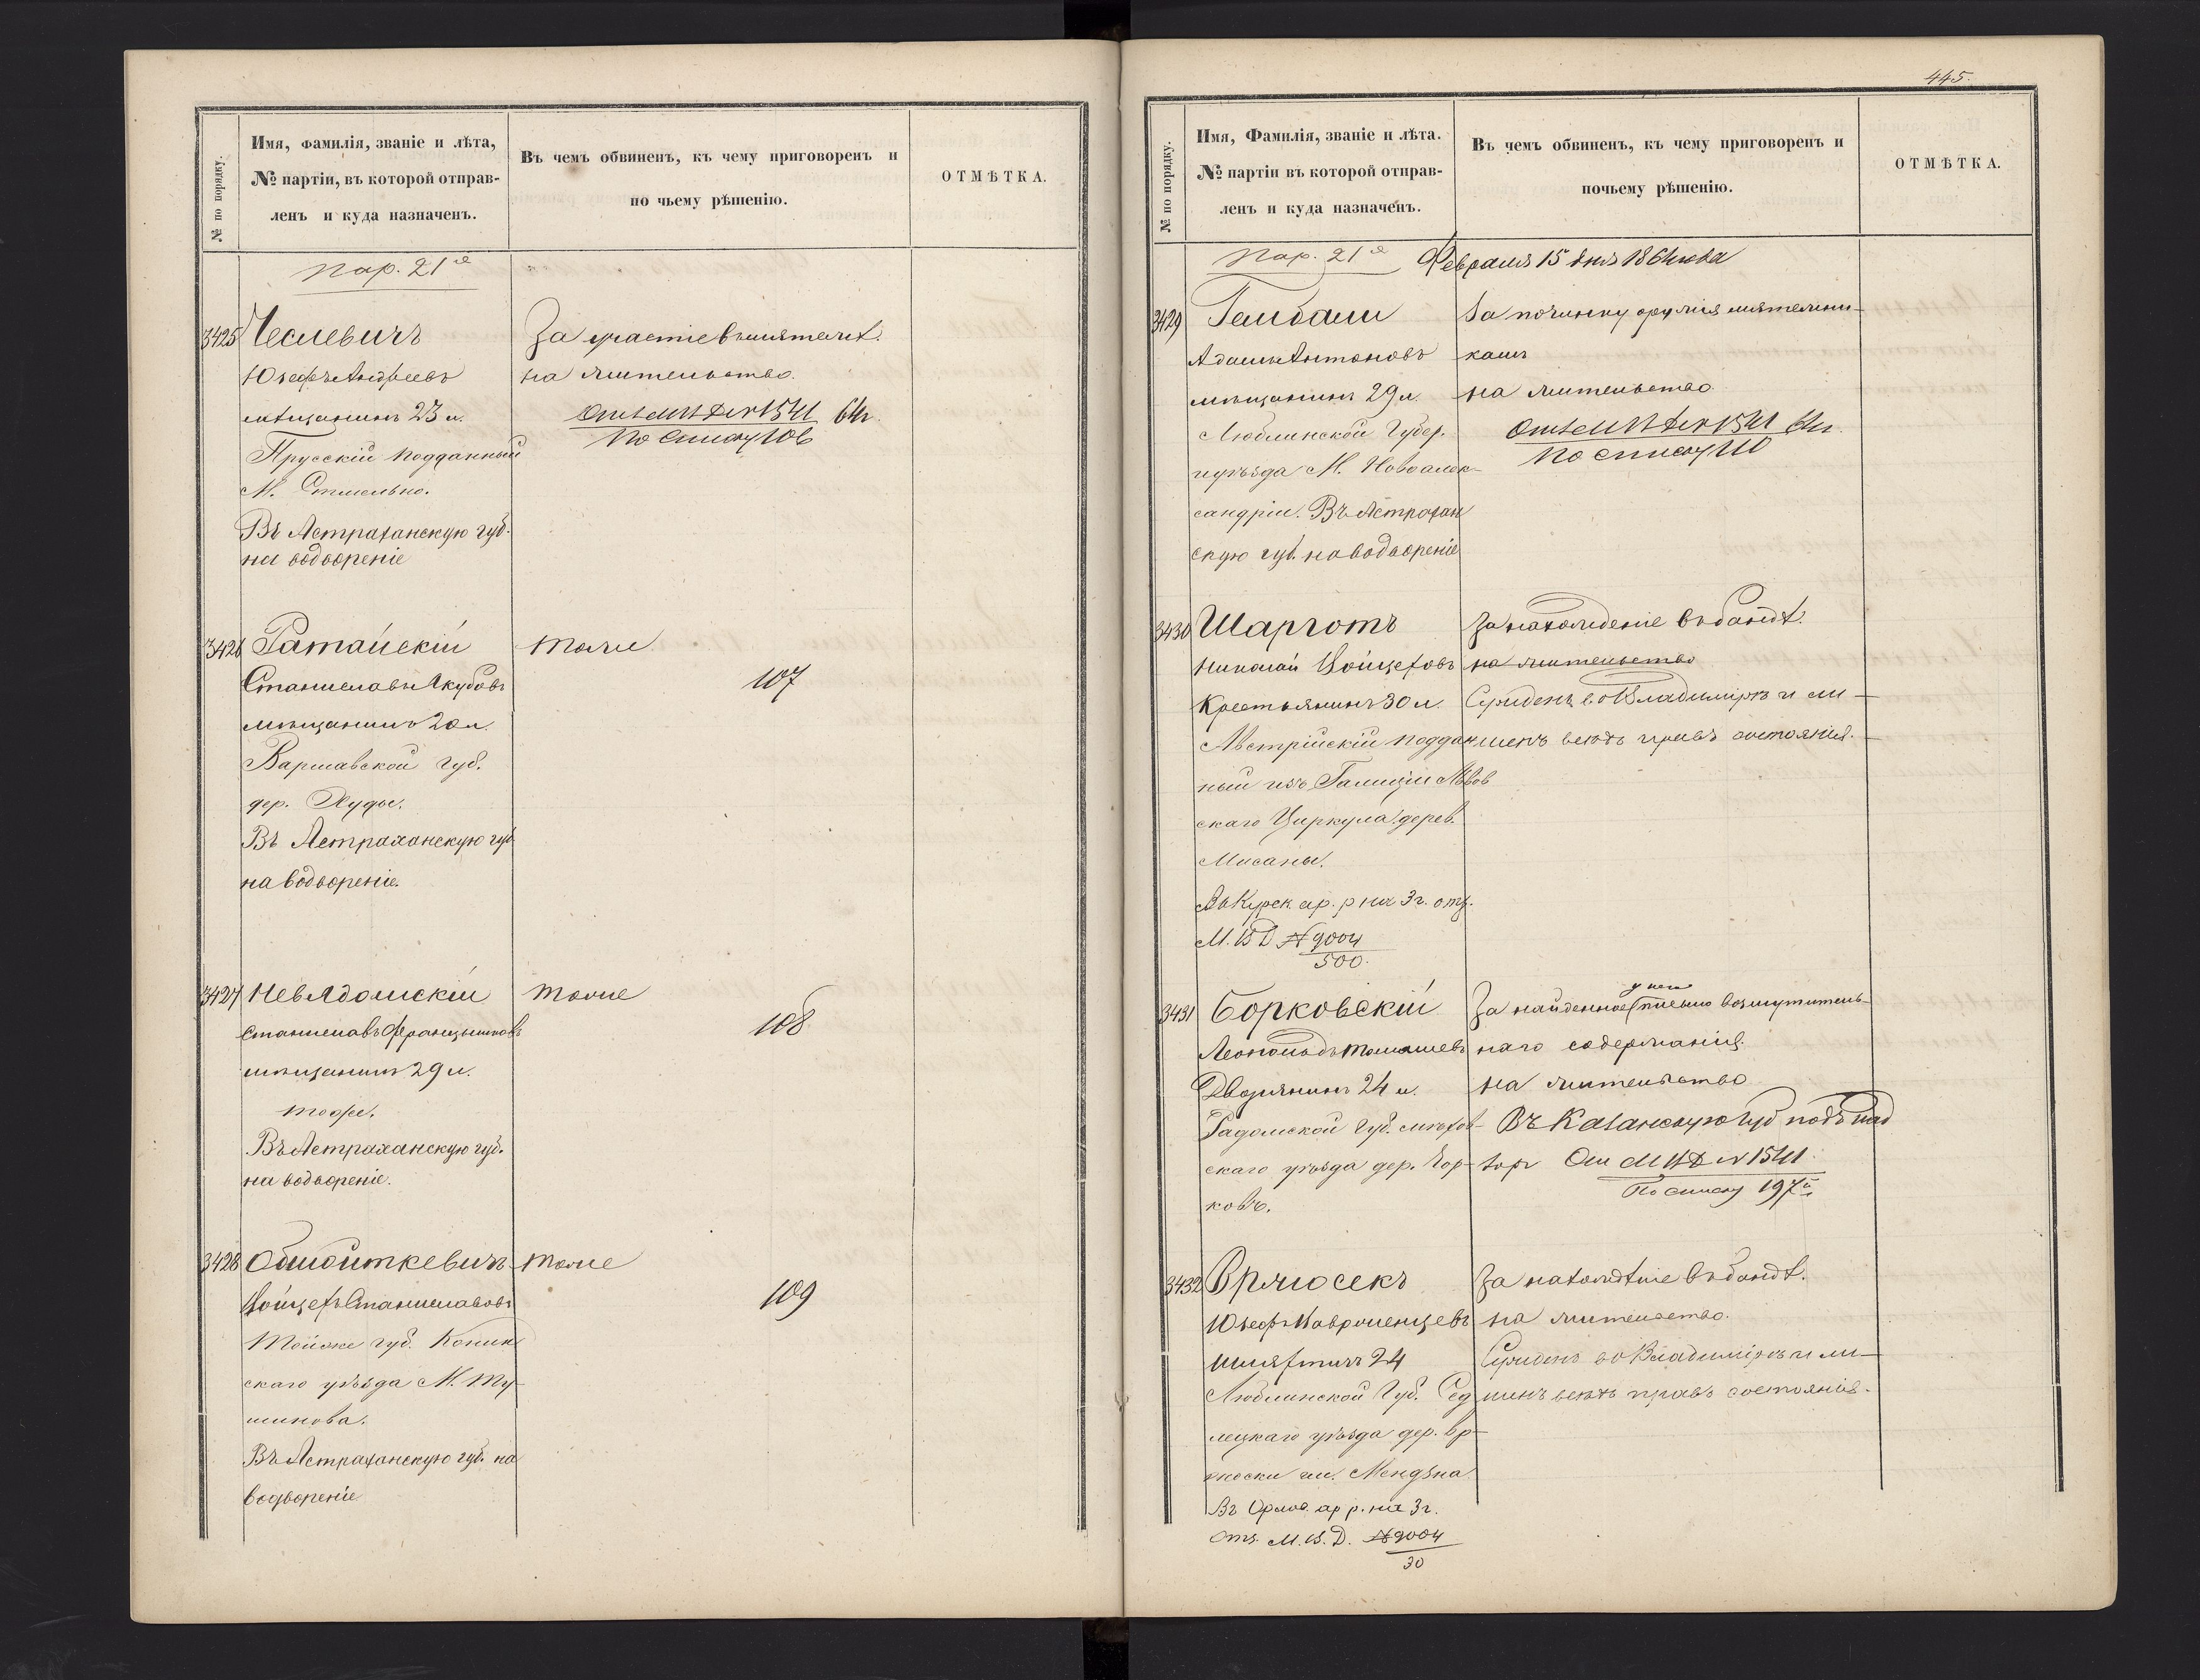 № по порядку.
Имя, Фамилія, званіе и лѣта,
№ партіи, въ которой отправ-
ленъ и куда назначенъ.
Въ чемъ обвиненъ, къ чему приговоренъ и
по чьему рѣшенію.
ОТМѢТКА.
пар. 21я
3425 Чеслевичъ
Юзефъ Андреевъ
мѣщанинъ 23 л.
Прусскій подданный
М.
Въ Астраханскую губ.
на водвореніе
За участіе въ мятежѣ.
на жительство.
От МВД № 1541 64 г.
По списку 106
3426 Ратайскій
Станиславъ Якубовъ
мѣщанинъ 20 л.
Варшавской губ.
дер.
Въ Астраханскую губ.
на водвореніе.
тоже
107
3427 Невядомскій
Станиславъ Францышковъ
мѣщанинъ 29 л.
тоже.
Въ Астраханскую губ.
на водвореніе.
тоже
108
3428
Войцехъ Станиславовъ
губ. Конин
скаго уѣзда М. Ту-
шинова.
Въ Астраханскую губ. на
водвореніе
тоже
109
445.
№ по порядку.
Имя, Фамилія, званіе и лѣта.
№ партіи въ которой отправ-
ленъ и куда назначенъ.
Въ чемъ обвиненъ, къ чему приговоренъ и
почьему рѣшенію.
ОТМѢТКА.
пар. 21я Февраля 15 дня 1864 года
3429
Адамъ Антоновъ
мѣщанинъ 29 л.
Люблинской Губер.
и уѣзда М. Новоалек-
сандріи. Въ Астрахан
скую губ. на водвореніе
За починку оружія мятежни-
камъ
на жительство
От МВД № 1541 64 г.
По списку 110
3430 Шарготъ
Николай Войцеховъ
Крестьянинъ 30 л.
Австрійскій поддан
ный изъ Галиціи Львов
скаго Циркула дерев.
Мисаны.
Въ Курск. ар. р на 3 г. отз.
М. В Д № 9004
500.
За нахожденіе въ бандѣ.
на жительство
Сужденъ во Владимірѣ и ли-
шенъ всѣхъ правъ состоянія.
3431 Борковскій
Леопольдъ Томашевъ
Дворянинъ 24 л.
Радомской Губ. мѣхов-
скаго уѣзда дер. Бор-
ковъ.
у него
За найденное письмо возмутитель-
наго содержанія.
на жительство
Въ Казанскую губ подъ над
зоръ От МВД № 1541
По списку 197й
3432
Юзефъ Вавржинцевъ
шляхтичъ 24
Люблинской Губ. Сед
лецкаго уѣзда дер. Вр-
гм.
Въ Орлов. ар р. на 3 г.
Отз. М. В. Д. № 9004
30
За нахожденіе въ бандѣ.
на жительство.
Сужденъ во Владимірѣ и ли-
шенъ всѣхъ правъ состоянія.